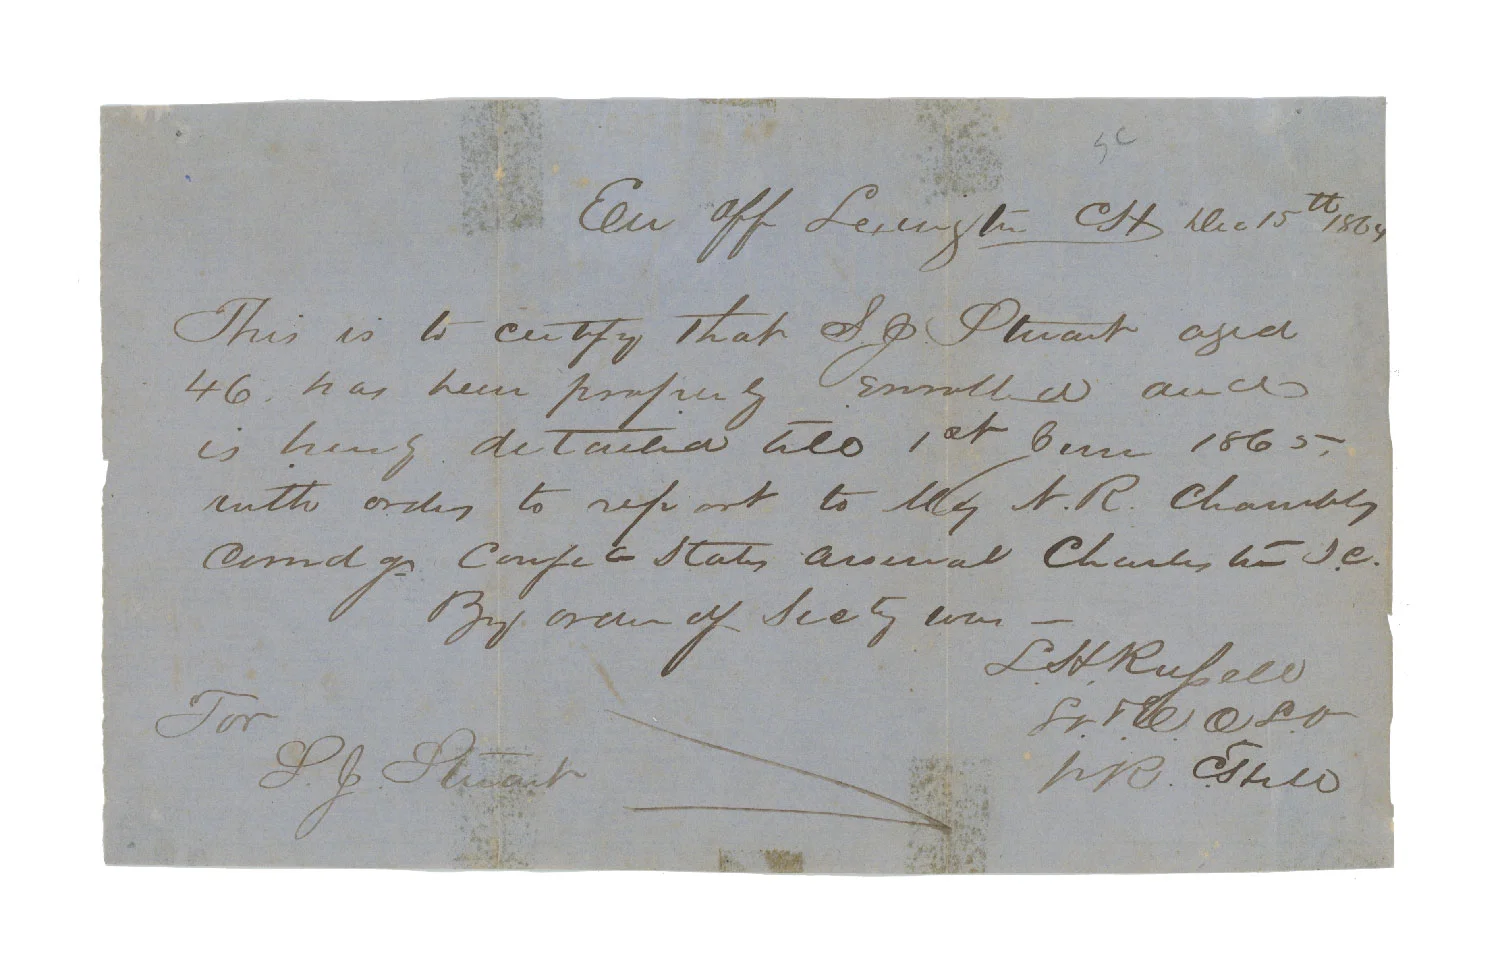 SC
En Off Lexington CH Dec 15th 1864
This is to certify that S. J. Stuart aged
46. has been properly Enrolled and
is hereby detailed till 1st June 1865,
with orders to report to N. R. Chambly
comdg Confed States arsenal Charleston S.C.
By order of Secty war —
L H Russell
Lt & E O L D
C S Hill
For
S. J. Stuart